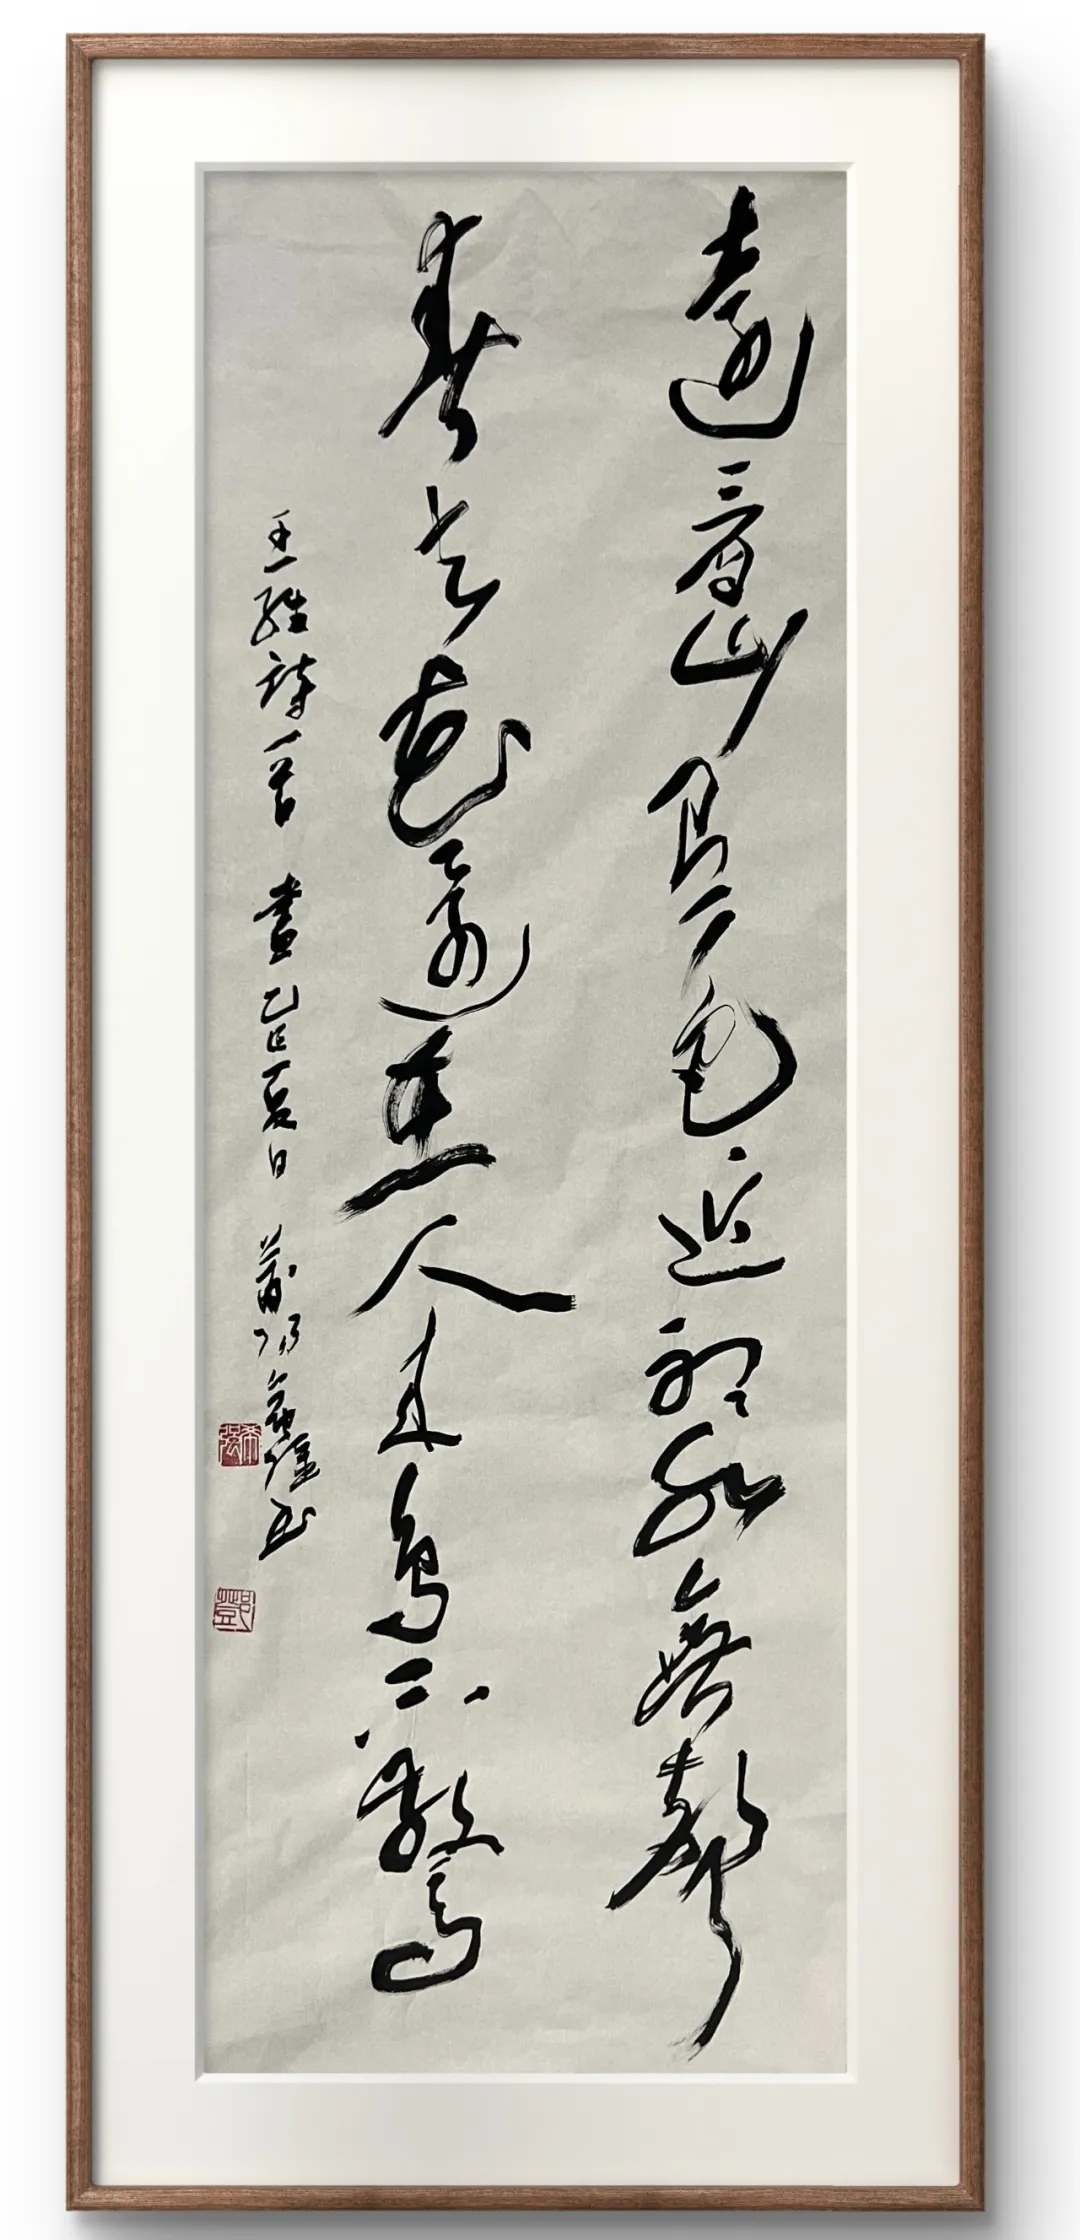 遠看山有色近聽水無聲
春去花還在人來鳥不驚
王維詩一首 書乙巳夏日 希強书
希强
鄧